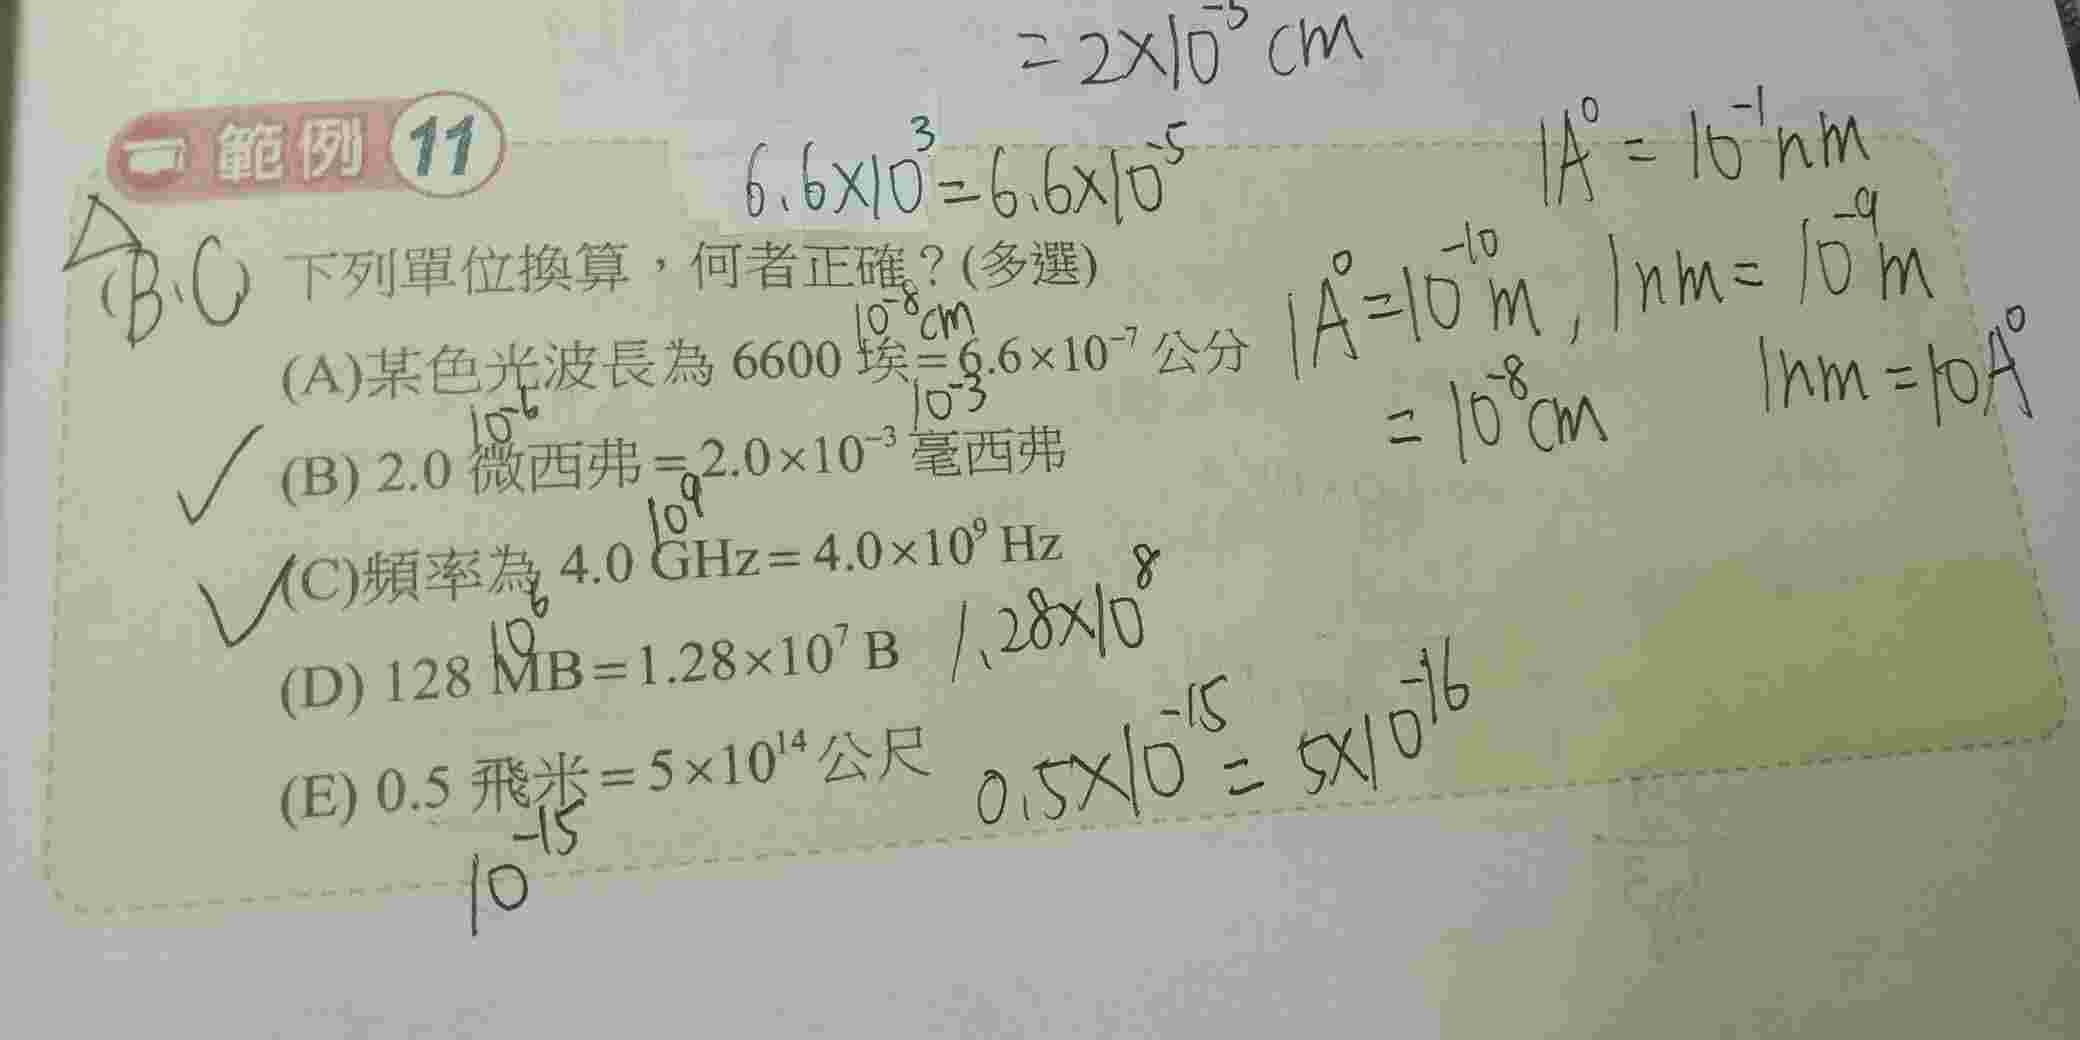 = 2×10⁻⁵ cm
範例 11
6.6×10³=6.6×10⁻⁵
1A⁰ = 10⁻¹nm
(B、C) 下列單位換算，何者正確？(多選)
1A⁰=10⁻¹⁰m , 1nm= 10⁻⁹m
= 10⁻⁸cm
1nm=10A⁰
10⁻⁸cm
(A)某色光波長為 6600 埃=6.6×10⁻⁷ 公分
10⁻⁶ 10⁻³
(B) 2.0 微西弗=2.0×10⁻³ 毫西弗
10⁹
(C)頻率為 4.0 GHz=4.0×10⁹ Hz
10⁶
(D) 128 MB=1.28×10⁷ B 1.28×10⁸
(E) 0.5 飛米=5×10¹⁴ 公尺 0.5×10⁻¹⁵= 5×10⁻¹⁶
10⁻¹⁵